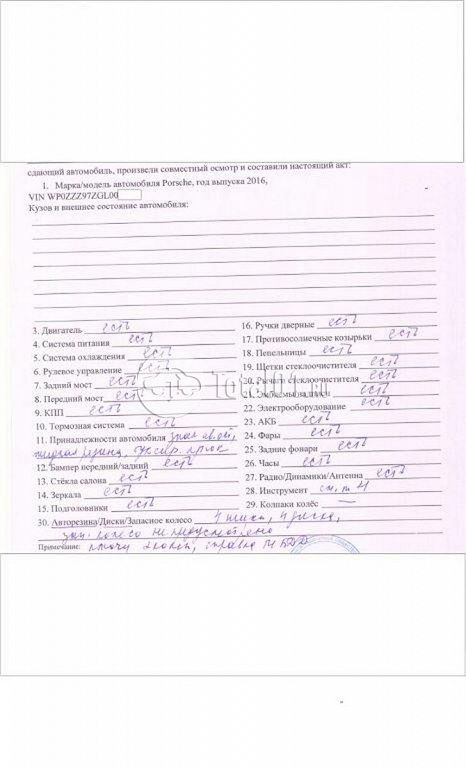 сдающий автомобиль, произвели совместный осмотр и составили настоящий акт:
1. Марка/модель автомобиля Porsche, год выпуска 2016,
VIN WP0ZZZ97ZGL00
Кузов и внешнее состояние автомобиля:
3. Двигатель есть
4. Система питания есть
5. Система охлаждения есть
6. Рулевое управление есть
7. Задний мост есть
8. Передний мост есть
9. КПП есть
10. Тормозная система есть
11. Принадлежности автомобиля знак ав. ост,
крюк
12. Бампер передний/задний есть
13. Стёкла салона есть
14. Зеркала есть
15. Подголовники есть
16. Ручки дверные есть
17. Противосолнечные козырьки есть
18. Пепельницы есть
19. Щетки стеклоочистителя есть
20. Рычаги стеклоочистителя есть
21. Эмблемы/надписи есть
22. Электрооборудование есть
23. АКБ есть
24. Фары есть
25. Задние фонари есть
26. Часы есть
27. Радио/Динамики/Антенна есть
28. Инструмент см. п 11
29. Колпаки колёс —
30. Авторезина/Диски/Запасное колесо 4 шины, 4 диска,
зап. колесо не предусмотрено
Примечание: ключи справка ГИБДД
Total01.ru